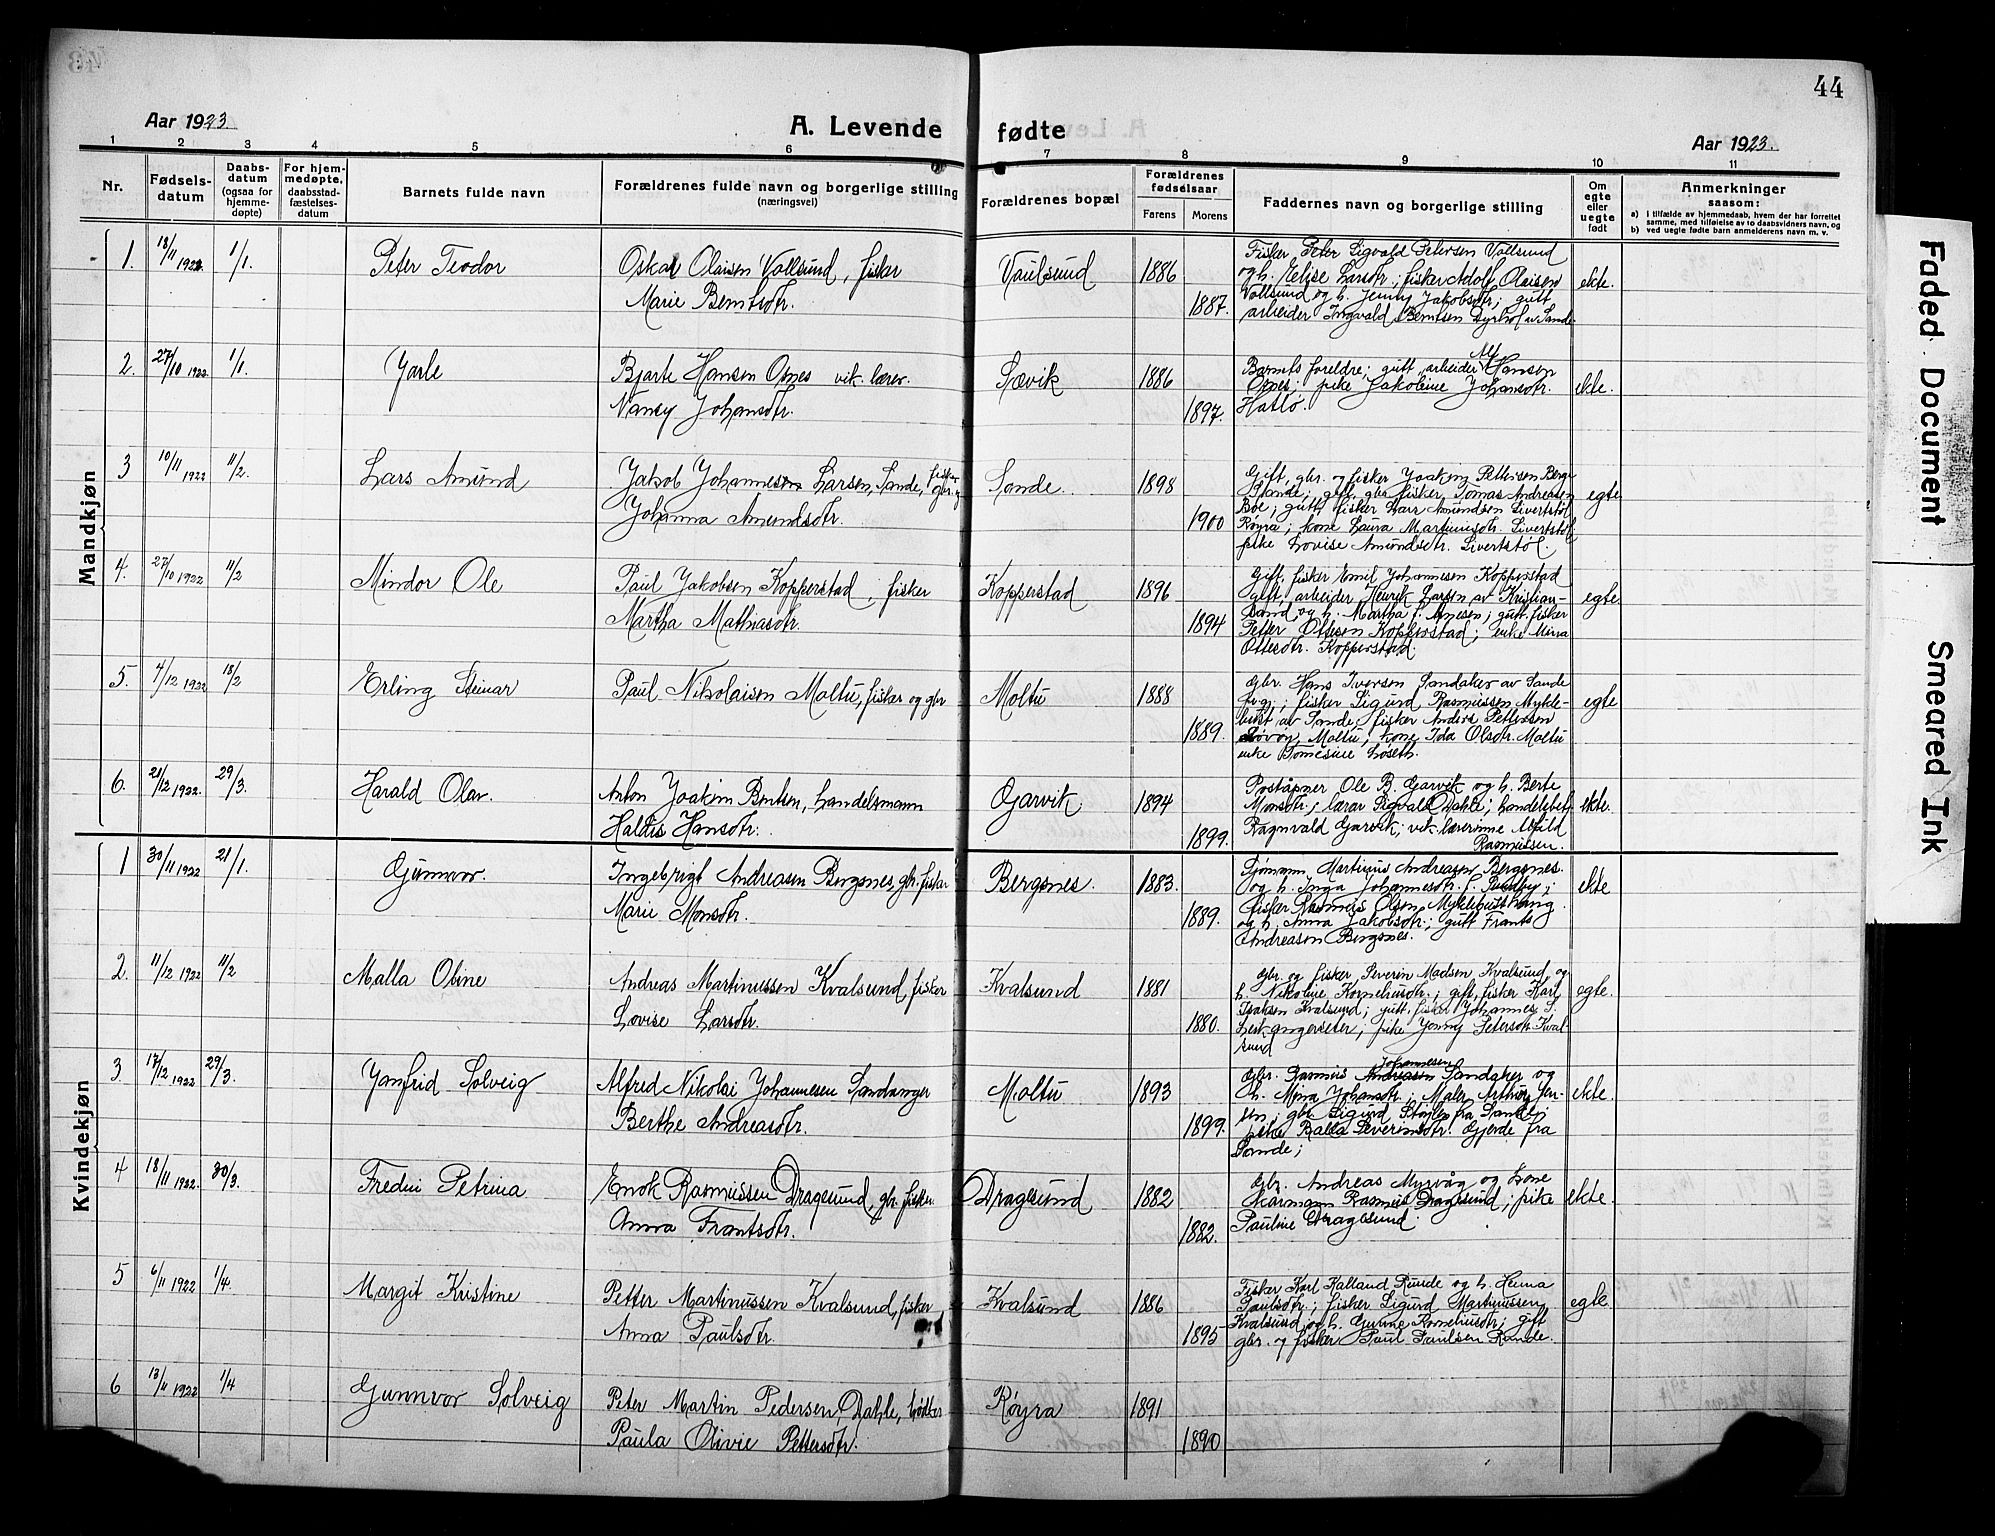 44
Aar 1923.
A. Levende fødte
Aar 1923.
1 2 3 4 5 6 7 8 9 10 11
Nr.
Fødsels-
datum
Daabs-
datum
(ogsaa for
hjemme-
døpte)
For hjem-
medøpte,
daabsstad-
fæstelses-
datum
Barnets fulde navn
Forældrenes fulde navn og borgerlige stilling
(næringsvei)
Forældrenes bopæl
Forældrenes
fødselsaar
Farens Morens
Faddernes navn og borgerlige stilling
Om
egte
eller
uegte
født
Anmerkninger
saasom:
a) i tilfælde av hjemmedaab, hvem der har forrettet
samme, med tilføielse av to daabsvidners navn, og
b) ved uegte fødte barn anmelderens navn m. v.
Mandkjøn
1. 18/11 1922. 1/1. Peter Teodor
Oskar Olaisen Vollsund, fisker
Marie Berntsdtr.
Vaulsund 1886 1887.
Fisker Peter Sigvald Petersen Vollsund
og h. Elise Larsdtr; fisker Adolf Olaisen
Vollsund og h. Jenny Jakobsdtr; gutt
arbeider Ingvald Berntsen Dyrhol av Sande
ekte.
2. 27/10 1922 1/1. Jarle
Bjarte Hansen Osnes vik. lærer.
Nancy Johansdtr.
Sævik 1886 1897.
Barnets foreldre; gutt, arbeider Alf Hansen
Osnes; pike Jakobine Johansdtr.
Hatlø.
ekte.
3 10/11 1922 11/2. Lars Amund
Jakob Johannesen Larsen, Sande, fisker gbr. og
Johanna Amundsdtr.
Sande. 1898 1900
Gift, gbr. og fisker Joakim Pettersen Berge
Sande; gift, gbr. fisker Tomas Andreasen
Boe; gutt, fisker Lars Amundsen Sivertstøl
Røyra; kone Laura Martinusdtr. Sivertstøl
pike Lovise Amundsdtr. Sivertstøl.
egte
4. 27/10 1922 11/2 Mindor Ole
Paul Jakobsen Kopperstad, fisker
Martha Mathiasdtr.
Kopperstad 1896 1894
Gift, fisker Emil Johannesen Kopperstad
gift, arbeider Henrik Larsen av Kristian-
sand og h. Martha f. Arnesen; gutt, fisker
Petter Ottesen Kopperstad; enke Mina
Ottesdtr. Kopperstad.
egte.
5. 4/12 1922 18/2 Erling Steinar
Paul Nikolaisen Moltu, fisker og gbr
Moltu 1888 1889.
Gbr. Hans Iversen Sandaker av Sande
fisker Sigurd Rasmussen Mykle-
bust av Sande; fisker Anders Pettersen
Moltu; kone Ida Olsdtr. Moltu
enke Tomesine Løseth.
egte
6. 21/12 1922. 29/3. Harald Olav.
Anton Joakim Berntsen, handelsmann
Haldis Hansdtr.
Garvik 1894 1899.
Poståpner Ole B. Garvik og h. Berte
Monsdtr; lærar Sigvald Dahle; handelsbetj.
Ragnvald Garvik; vik. lærerinne Alfild
Rasmussen.
ekte.
Kvindekjøn
1 30/11 1922 21/1. Gunnvor.
Ingebrigt Andreasen Bergsnes, gbr. fisker
Marie Monsdtr.
Bergsnes. 1883. 1889.
Sjømann Martinus Andreasen Bergsnes
og h. Inga Johannesdtr. f.
fisker Rasmus Olsen Myklebusthaug
og h. Anna Jakobsdtr; gutt Frants
Andreasen Bergsnes.
ekte
2. 11/12 1922 11/2 Malla Oline
Andreas Martinussen Kvalsund, fisker
Lovise Larsdtr.
Kvalsund 1881 1880.
Gbr. og fisker Severin Madsen Kvalsund og
h. Nikoline Korneliusdtr.; gift, fisker Karl
Isaksen Kvalsund; gutt, fisker Johannes S.
Leikangerseter; pike Jonny Petersdtr. Kval-
sund
egte.
3 17/12 1922 29/3. Janfrid Solveig
Alfred Nikolai Johannesen Sandanger
Berthe Andreasdtr.
Moltu 1893 1899.
Gbr. Rasmus Johannesen Sandaker og
h. Mina Johansdtr.; Maler Arthur Iver-
sen; gbr. Sigurd fra Sande;
pike Ralla Severinsdtr. Gjerde fra
Sande;
ekte.
4 18/11 1922. 30/3. Fredrie Petrina
Enok Rasmussen Dragsund, gbr. fisker
Anna Frantsdtr.
Dragsund 1882 1882.
Gbr. Andreas Myrvåg og kone
Rasmus Dragesund; pike
Pauline Dragesund.
ekte.
5 6/11 1922 1/4. Margit Kristine
Petter Martinussen Kvalsund, fisker
Anna Paulsdtr.
Kvalsund 1886 1895
Fisker Karl Kalland Runde og h. Hema
Paulsdtr.; fisker Sigurd Martinussen
Kvalsund og h. Gurine Korneliusdtr; gift
gbr. og fisker Paul Paulsen Runde.
egte.
6 13/11 1922 1/4 Gunnvor Solveig
Peter Martin Pedersen Dahle, bødker
Paula Olivie Pettersdtr.
Røyra 1891 1890
Faded Document
Smeared Ink